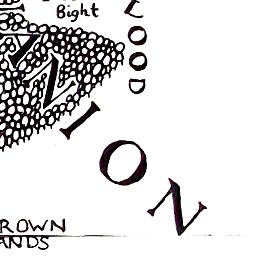 Bight
OOD
ANION
ROWN
ANDS